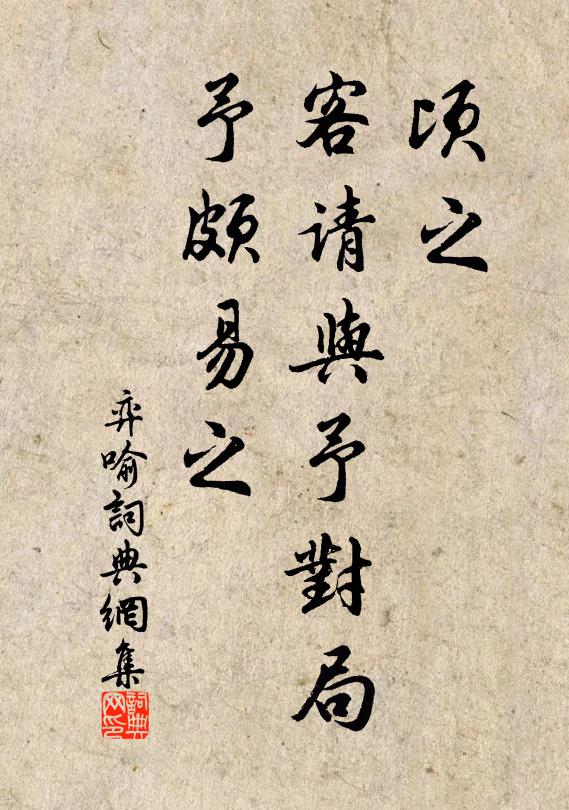 頃之
客請與予對局
予頗易之
弈喻詞典網集
詞典网印